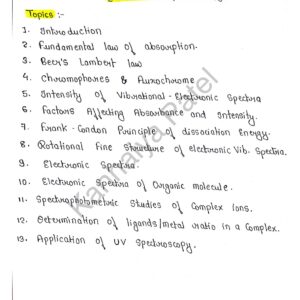 Topics :-
1. Introduction
2. Fundamental law of absorption.
3. Beer's Lambert law
4. Chromophores & Auxochrome
5. Intensity of Vibrational-Electronic Spectra
6. Factors Affecting Absorbance and Intensity.
7. Frank-Condon Principle of dissociation Energy.
8. Rotational Fine Structure of electronic Vib. Spectra.
9. Electronic Spectra.
10. Electronic Spectra of Organic molecule.
11. Spectrophotometric Studies of Complex Ions.
12. Determination of ligands/metal ratio in a Complex.
13. Application of UV Spectroscopy.
Kanhaiya Patel